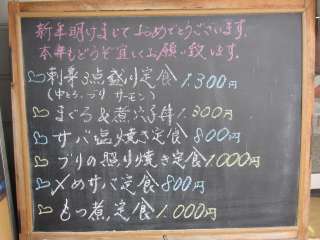 新年明けましておめでとうございます。
本年もどうぞ宜しくお願い致します。
刺身3点盛り定食 1.300円
(中とろ、ブリ、サーモン)
まぐろ&煮穴子丼 1.300円
サバ塩焼き定食 800円
ブリの照り焼き定食 1.000円
〆めサバ定食 800円
もつ煮定食 1.000円